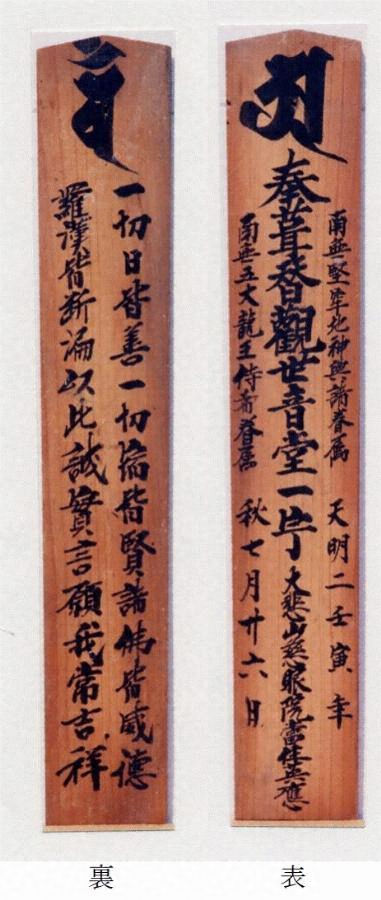 南無堅牢地神與諸眷属 天明二壬寅年
奉葺替觀世音堂一宇 大悲山慈眼院當住應
南無五大龍王侍者眷属 秋七月廿六日
表
一切日皆善一切宿皆賢諸佛皆威德
羅漢皆断漏以此誠實言願我常吉祥
裏